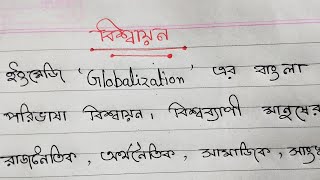 বিশ্বায়ন
ইংরেজি 'Globalization' এর বাংলা
পরিভাষা বিশ্বায়ন। বিশ্বব্যাপী মানুষের
রাজনৈতিক, অর্থনৈতিক, সামাজিক,